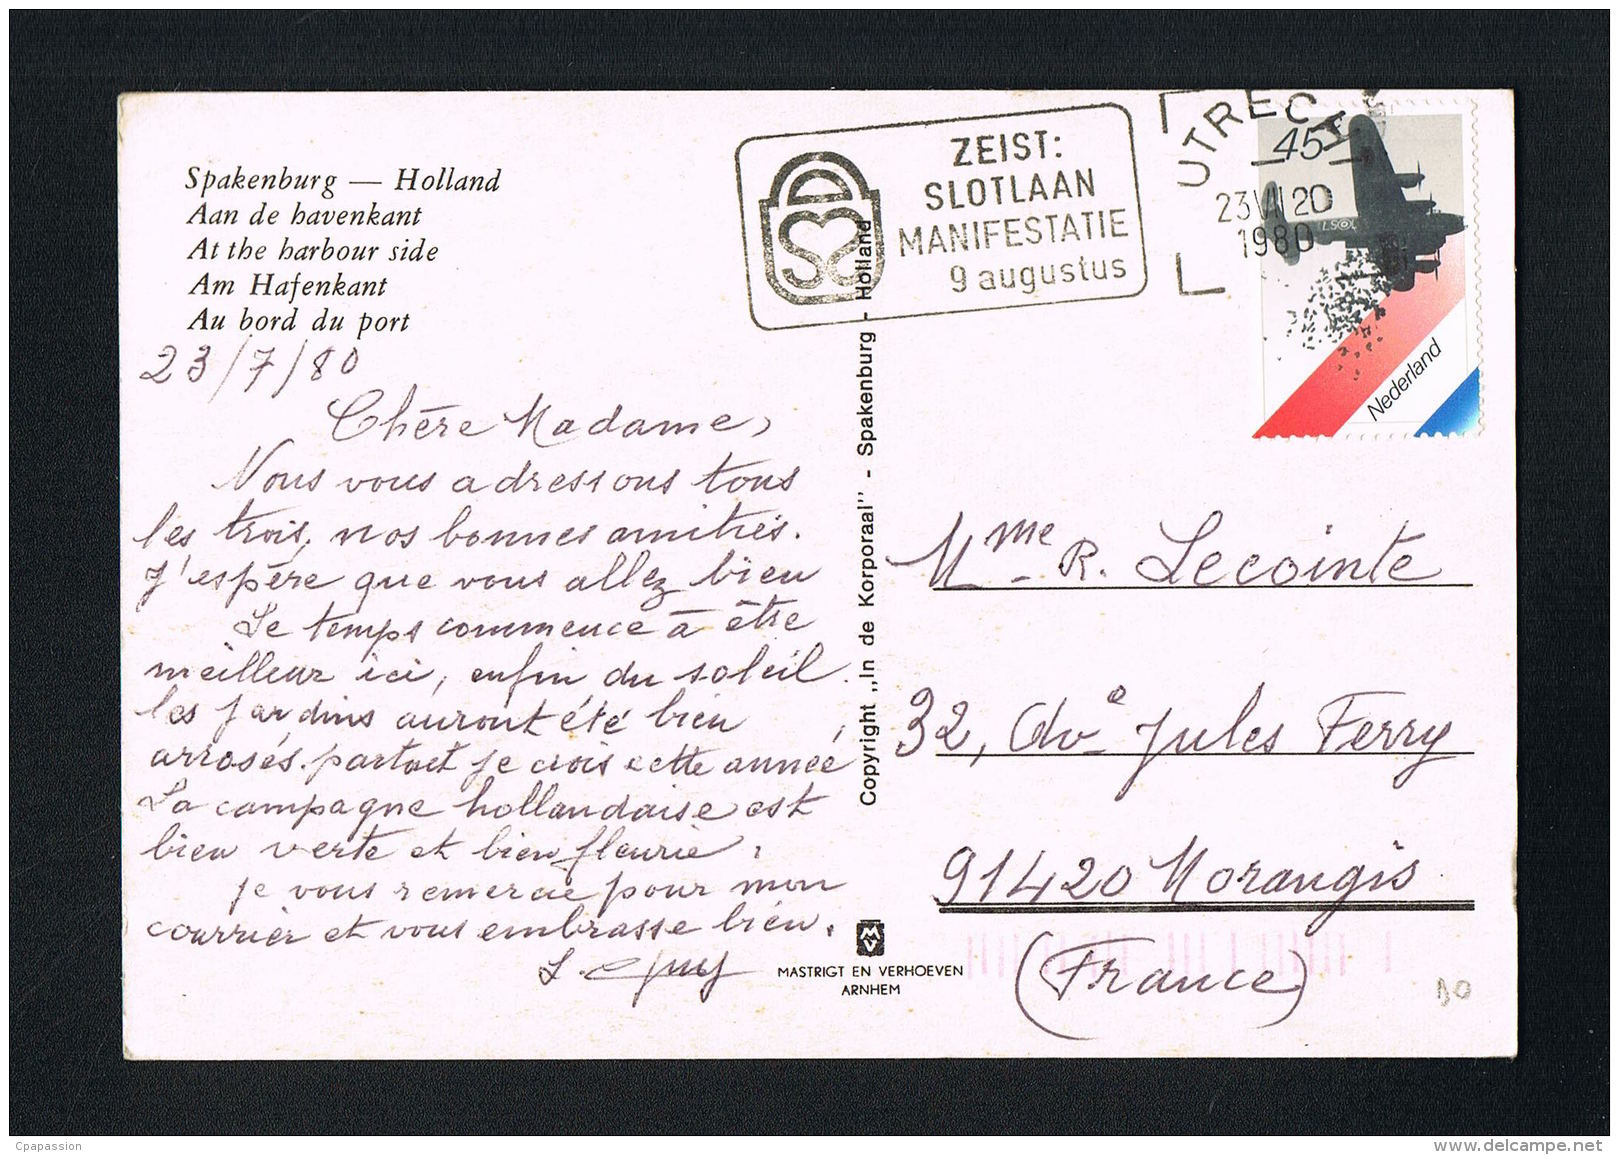 Spakenburg — Holland
Aan de havenkant
At the harbour side
Am Hafenkant
Au bord du port
23/7/80
Chère Madame,
Nous vous adressons tous
les trois, nos bonnes amitiés.
J'espère que vous allez bien
Le temps commence à être
meilleur ici, enfin du soleil.
les jardins auront été bien
arrosés partout je crois cette année,
La campagne hollandaise est
bien verte et bien fleurie.
Je vous remercie pour mon
courrier et vous embrasse bien.
ZEIST:
SLOTLAAN
MANIFESTATIE
9 augustus
UTRECHT
23 VII 20
1980
45
Nederland
Copyright „In de Korporaal" - Spakenburg - Holland
MV
MASTRIGT EN VERHOEVEN
ARNHEM
Mme R. Lecointe
32, Ave Jules Ferry
91420 Morangis
(France)
Cpapassion
www.delcampe.net